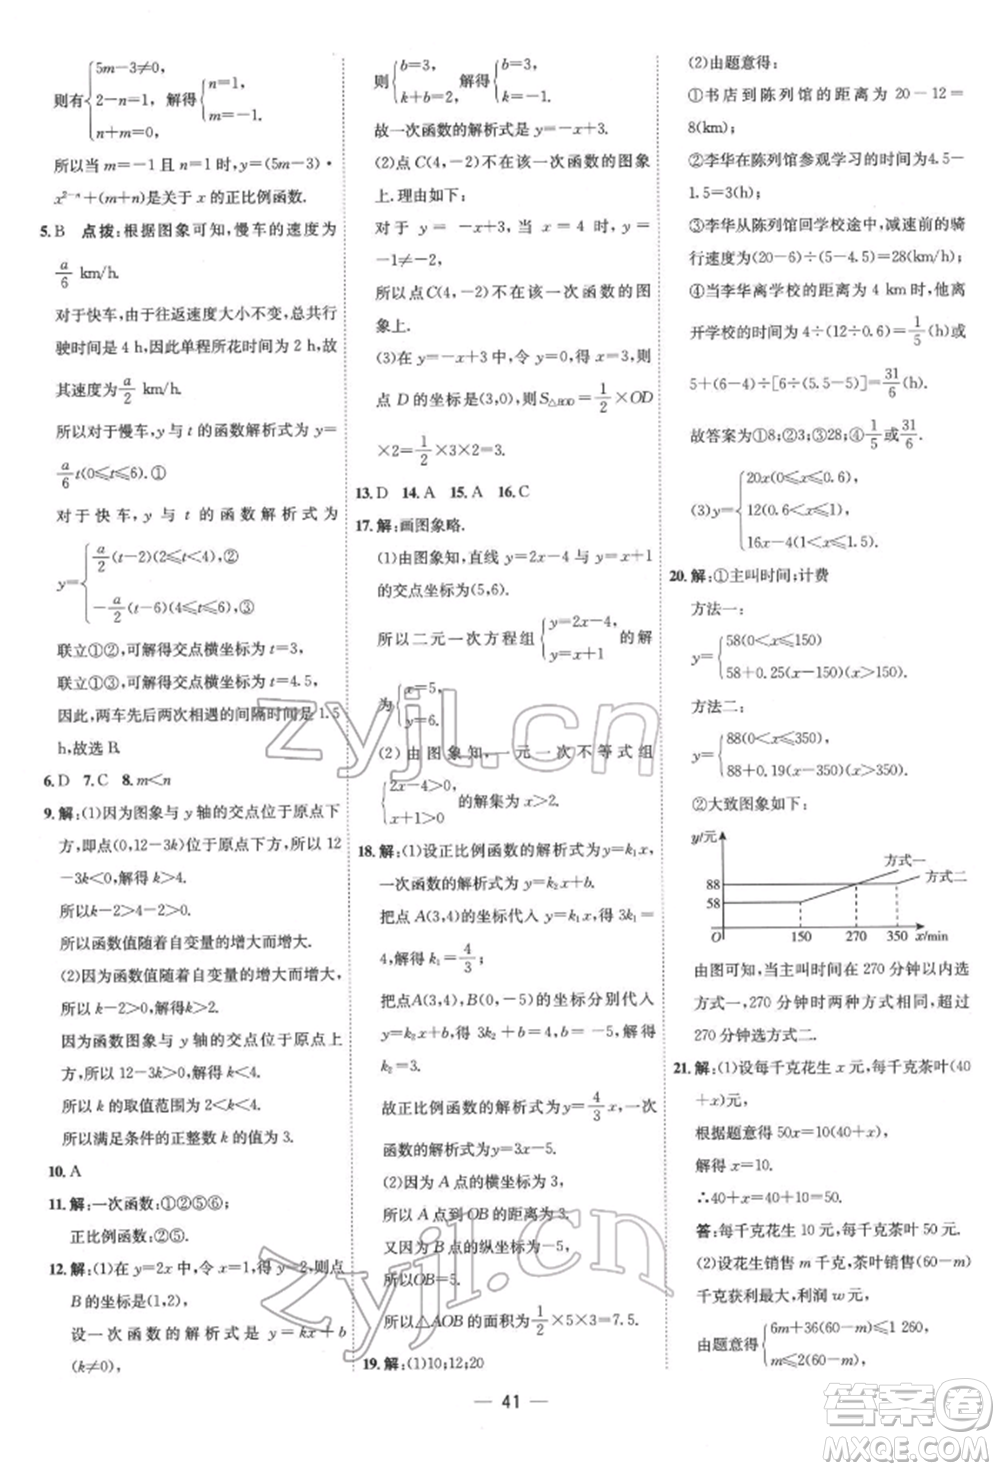 则有{5m-3≠0,
2-n=1,
n+m=0,
解得{n=1,
m=-1.
所以当 m=-1 且 n=1 时,y=(5m-3)·
x²⁻ⁿ+(m+n)是关于 x 的正比例函数.
5. B 点拨:根据图象可知,慢车的速度为
a/6 km/h.
对于快车,由于往返速度大小不变,总共行
驶时间是 4 h,因此单程所花时间为 2 h,故
其速度为 a/2 km/h.
所以对于慢车,y 与 t 的函数解析式为 y=
a/6 t(0≤t≤6).①
对于快车,y 与 t 的函数解析式为
y={a/2(t-2)(2≤t<4),②
-a/2(t-6)(4≤t≤6).③
联立①②,可求得交点横坐标为 t=3,
联立①③,可求得交点横坐标为 t=4.5,
因此,两车先后两次相遇的间隔时间是 1.5
h,故选 B.
6. D 7. C 8. m<n
9. 解:(1)因为图象与 y 轴的交点位于原点下
方,即点(0,12-3k)位于原点下方,所以 12
-3k<0,解得 k>4.
所以 k-2>4-2>0.
所以函数值随着自变量的增大而增大.
(2)因为函数值随着自变量的增大而增大,
所以 k-2>0,解得 k>2.
因为函数图象与 y 轴的交点位于原点上
方,所以 12-3k>0,解得 k<4.
所以 k 的取值范围为 2<k<4.
所以满足条件的正整数 k 的值为 3.
10. A
11. 解:一次函数:①②⑤⑥;
正比例函数:②⑤.
12. 解:(1)在 y=2x 中,令 x=1,得 y=2,则点
B 的坐标是(1,2),
设一次函数的解析式是 y=kx+b
(k≠0),
则{b=3,
k+b=2,
解得{b=3,
k=-1.
故一次函数的解析式是 y=-x+3.
(2)点 C(4,-2)不在该一次函数的图象
上.理由如下:
对于 y=-x+3,当 x=4 时,y=
-1≠-2,
所以点 C(4,-2)不在该一次函数的图
象上.
(3)在 y=-x+3 中,令 y=0,得 x=3,则
点 D 的坐标是(3,0),S△BOD=1/2×OD
×2=1/2×3×2=3.
13. D 14. A 15. A 16. C
17. 解:画图象略.
(1)由图象知,直线 y=2x-4 与 y=x+1
的交点坐标为(5,6).
所以二元一次方程组{y=2x-4,
y=x+1
的解
为{x=5,
y=6.
(2)由图象知,一元一次不等式组
{2x-4>0,
x+1>0
的解集为 x>2.
18. 解:(1)设正比例函数的解析式为 y=k₁x,
一次函数的解析式为 y=k₂x+b.
把点 A(3,4)的坐标代入 y=k₁x,得 3k₁=
4,解得 k₁=4/3;
把点 A(3,4),B(0,-5)的坐标分别代入
y=k₂x+b,得 3k₂+b=4,b=-5,解得
k₂=3.
故正比例函数的解析式为 y=4/3x,一次
函数的解析式为 y=3x-5.
(2)因为 A 点的横坐标为 3,
所以 A 点到 OB 的距离为 3.
又因为 B 点的纵坐标为-5,
所以 OB=5.
所以△AOB 的面积为 1/2×5×3=7.5.
19. 解:(1)10;12;20
(2)由题意得:
①书店到陈列馆的距离为 20-12=
8(km);
②李华在陈列馆参观学习的时间为4.5-
1.5=3(h);
③李华从陈列馆回学校途中,减速前的骑
行速度为(20-6)÷(5-4.5)=28(km/h);
④当李华离学校的距离为 4 km 时,他离
开学校的时间为 4÷(12÷0.6)=1/5(h)或
5+(6-4)÷[6÷(5.5-5)]=31/6(h).
故答案为①8;②3;③28;④1/5或31/6.
(3)y={20x(0≤x≤0.6),
12(0.6<x≤1),
16x-4(1<x≤1.5).
20. 解:①主叫时间;计费
方法一:
y={58(0<x≤150)
58+0.25(x-150)(x>150).
方法二:
y={88(0<x≤350)
88+0.19(x-350)(x>350).
②大致图象如下:
y/元
方式一
88
方式二
58
O
150 270 350 x/min
由图可知,当主叫时间在 270 分钟以内选
方式一,270 分钟时两种方式相同,超过
270 分钟选方式二.
21. 解:(1)设每千克花生 x 元,每千克茶叶(40
+x)元,
根据题意得 50x=10(40+x),
解得 x=10.
∴40+x=40+10=50.
答:每千克花生 10 元,每千克茶叶 50 元.
(2)设花生销售 m 千克,茶叶销售(60-m)
千克获利最大,利润 w 元.
由题意得{6m+36(60-m)≤1 260,
m≤2(60-m),
— 41 —
zyjl.cn
zyjl.cn
答案圈
MXQE.COM